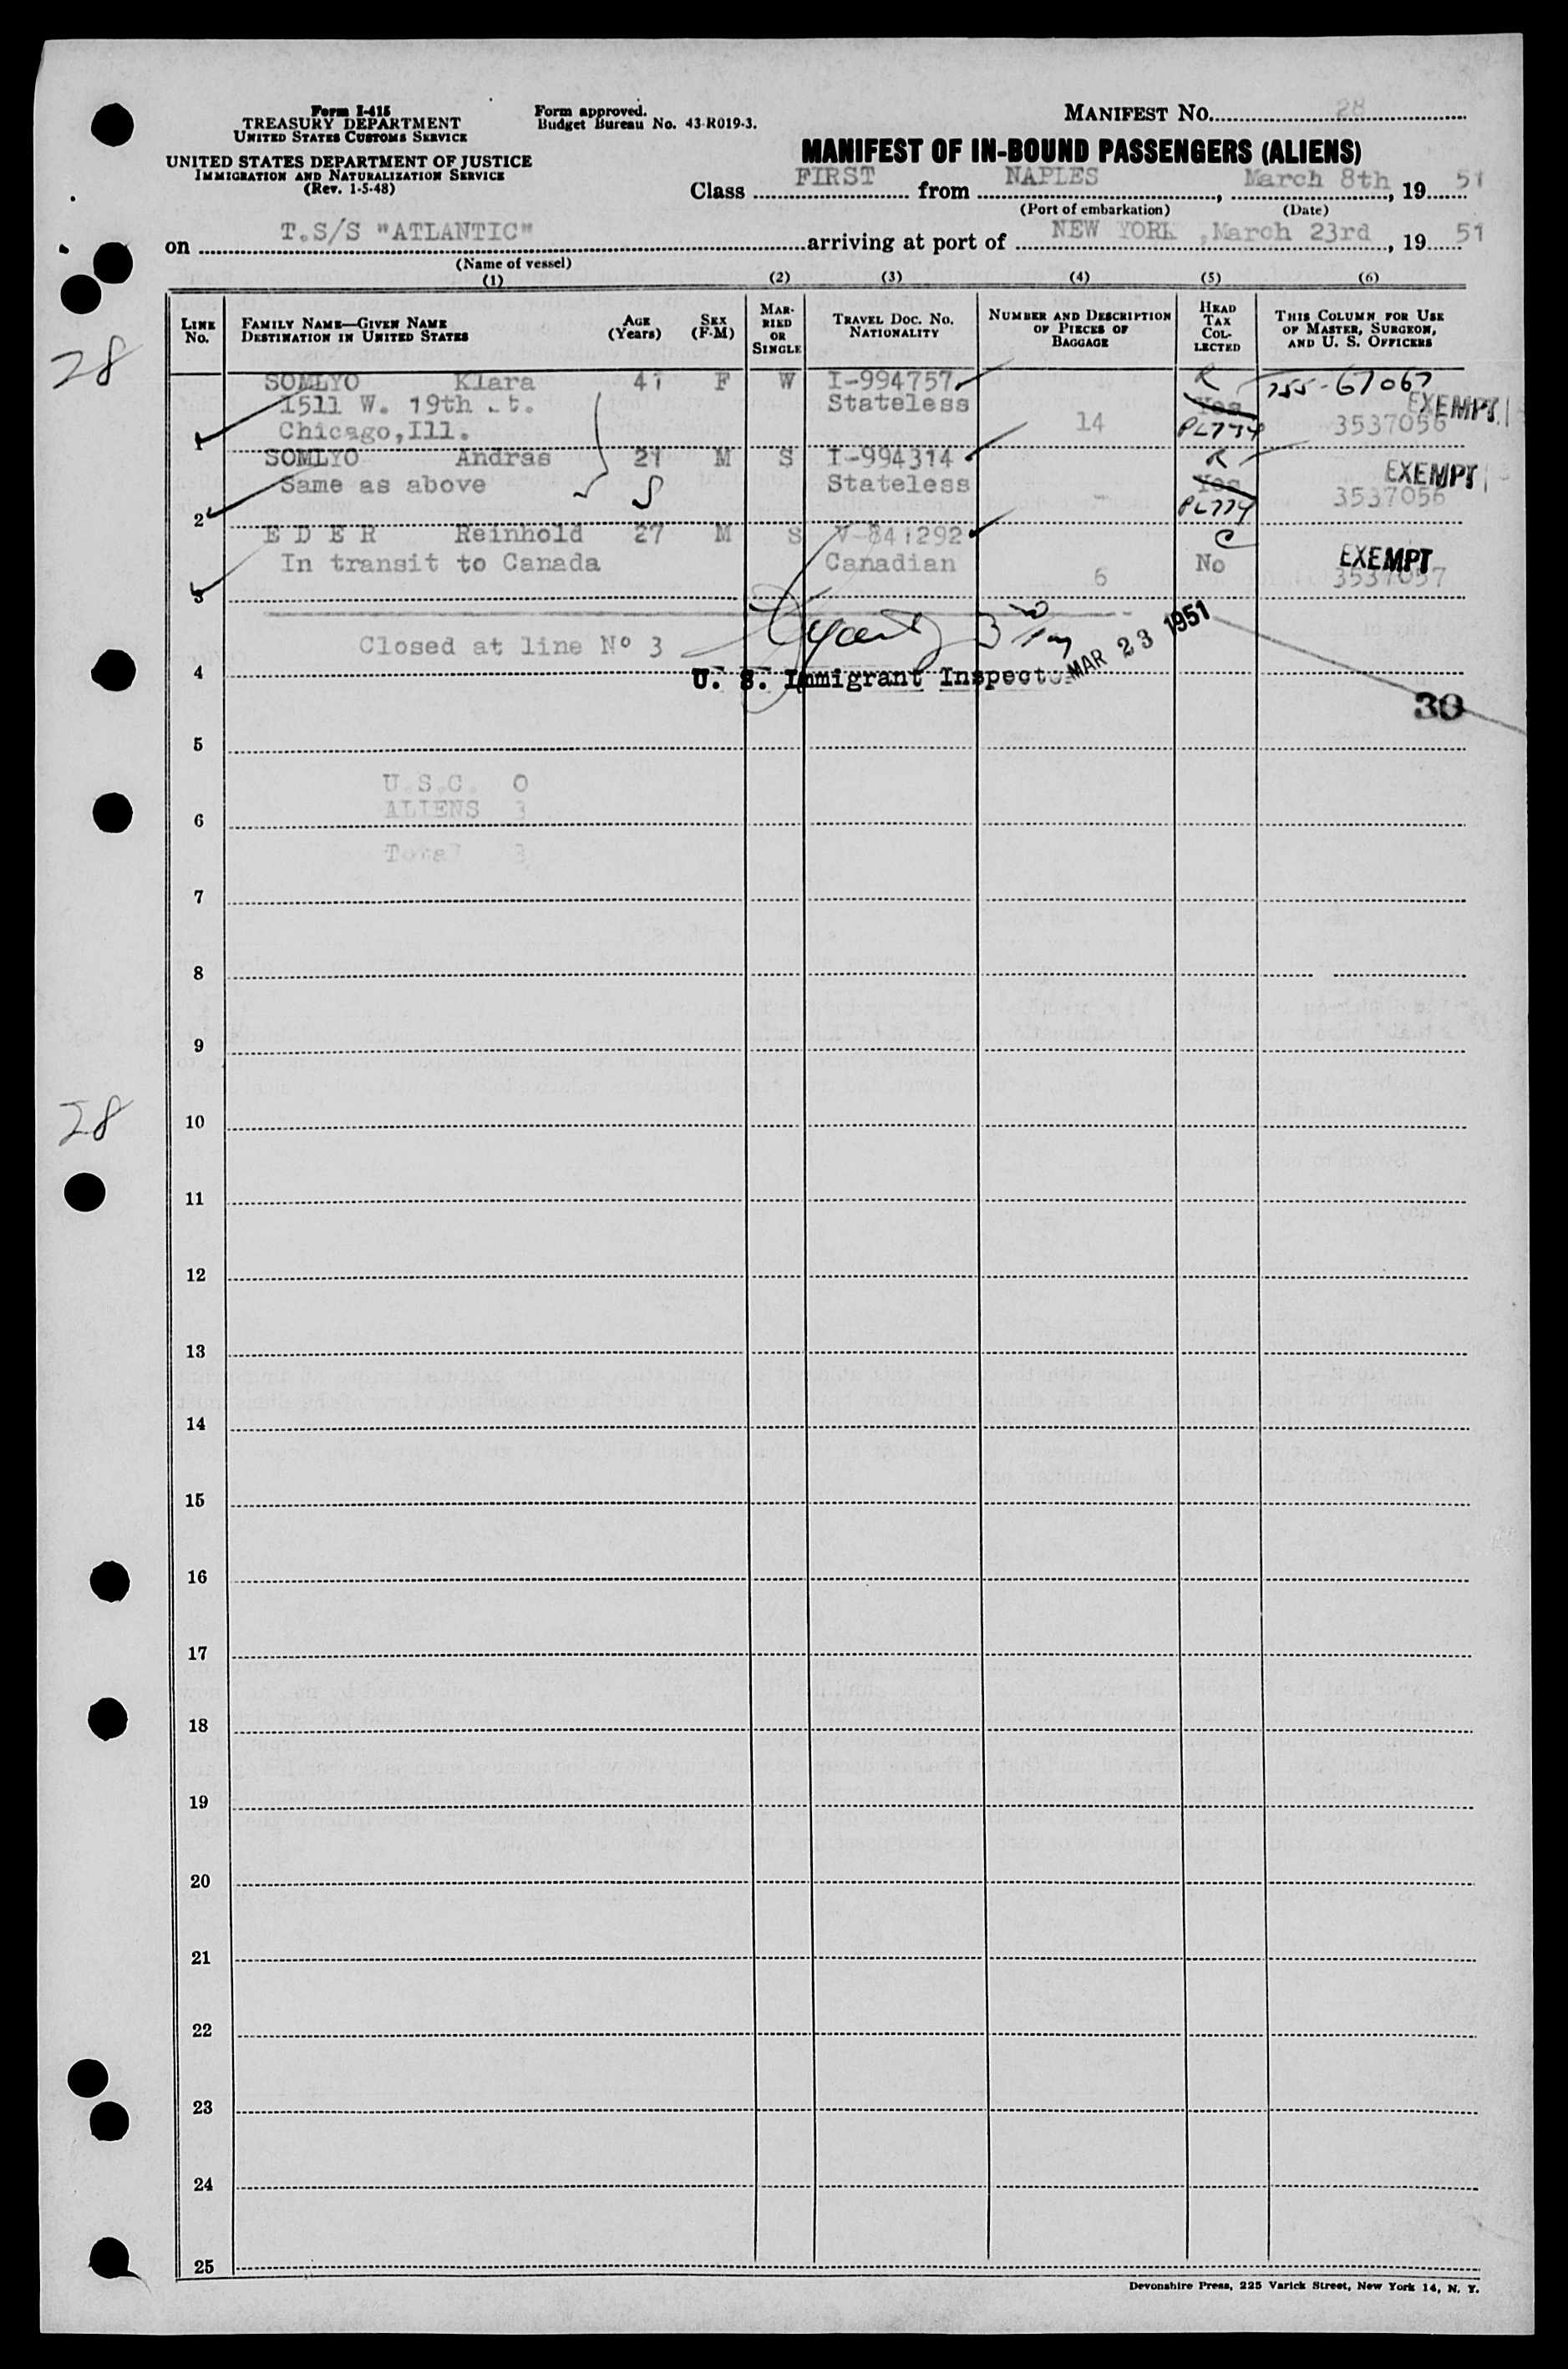 Form I-415
TREASURY DEPARTMENT
UNITED STATES CUSTOMS SERVICE
UNITED STATES DEPARTMENT OF JUSTICE
IMMIGRATION AND NATURALIZATION SERVICE
(Rev. 1-5-48)
Form approved.
Budget Bureau No. 43-R019-3.
MANIFEST NO. 28
MANIFEST OF IN-BOUND PASSENGERS (ALIENS)
Class FIRST from NAPLES, March 8th, 19 51
(Port of embarkation) (Date)
on T.S/S "ATLANTIC" arriving at port of NEW YORK, March 23rd, 19 51
(Name of vessel)
(1) (2) (3) (4) (5) (6)
LINE No.
FAMILY NAME—GIVEN NAME
DESTINATION IN UNITED STATES
AGE (Years)
SEX (F-M)
MARRIED OR SINGLE
TRAVEL DOC. NO.
NATIONALITY
NUMBER AND DESCRIPTION OF PIECES OF BAGGAGE
HEAD TAX COLLECTED
THIS COLUMN FOR USE OF MASTER, SURGEON, AND U. S. OFFICERS
28
SOMLYO Klara 41 F W I-994757 R 755-67067
1511 W. 19th St. Stateless Yes EXEMPT
Chicago, Ill. 14 PL774 3537056
1
SOMLYO Andras 21 M S I-994314 R EXEMPT
Same as above S Stateless - Yes 3537056
2 PL774
E D E R Reinhold 27 M S V-841292 C
In transit to Canada Canadian 6 No EXEMPT
3 3537057
Closed at line Nº 3
4 U. S. Immigrant Inspector MAR 23 1951
30
5
U.S.C. 0
6 ALIENS 3
Total 3
7
8
9
28
10
11
12
13
14
15
16
17
18
19
20
21
22
23
24
25
Devonshire Press, 225 Varick Street, New York 14, N. Y.